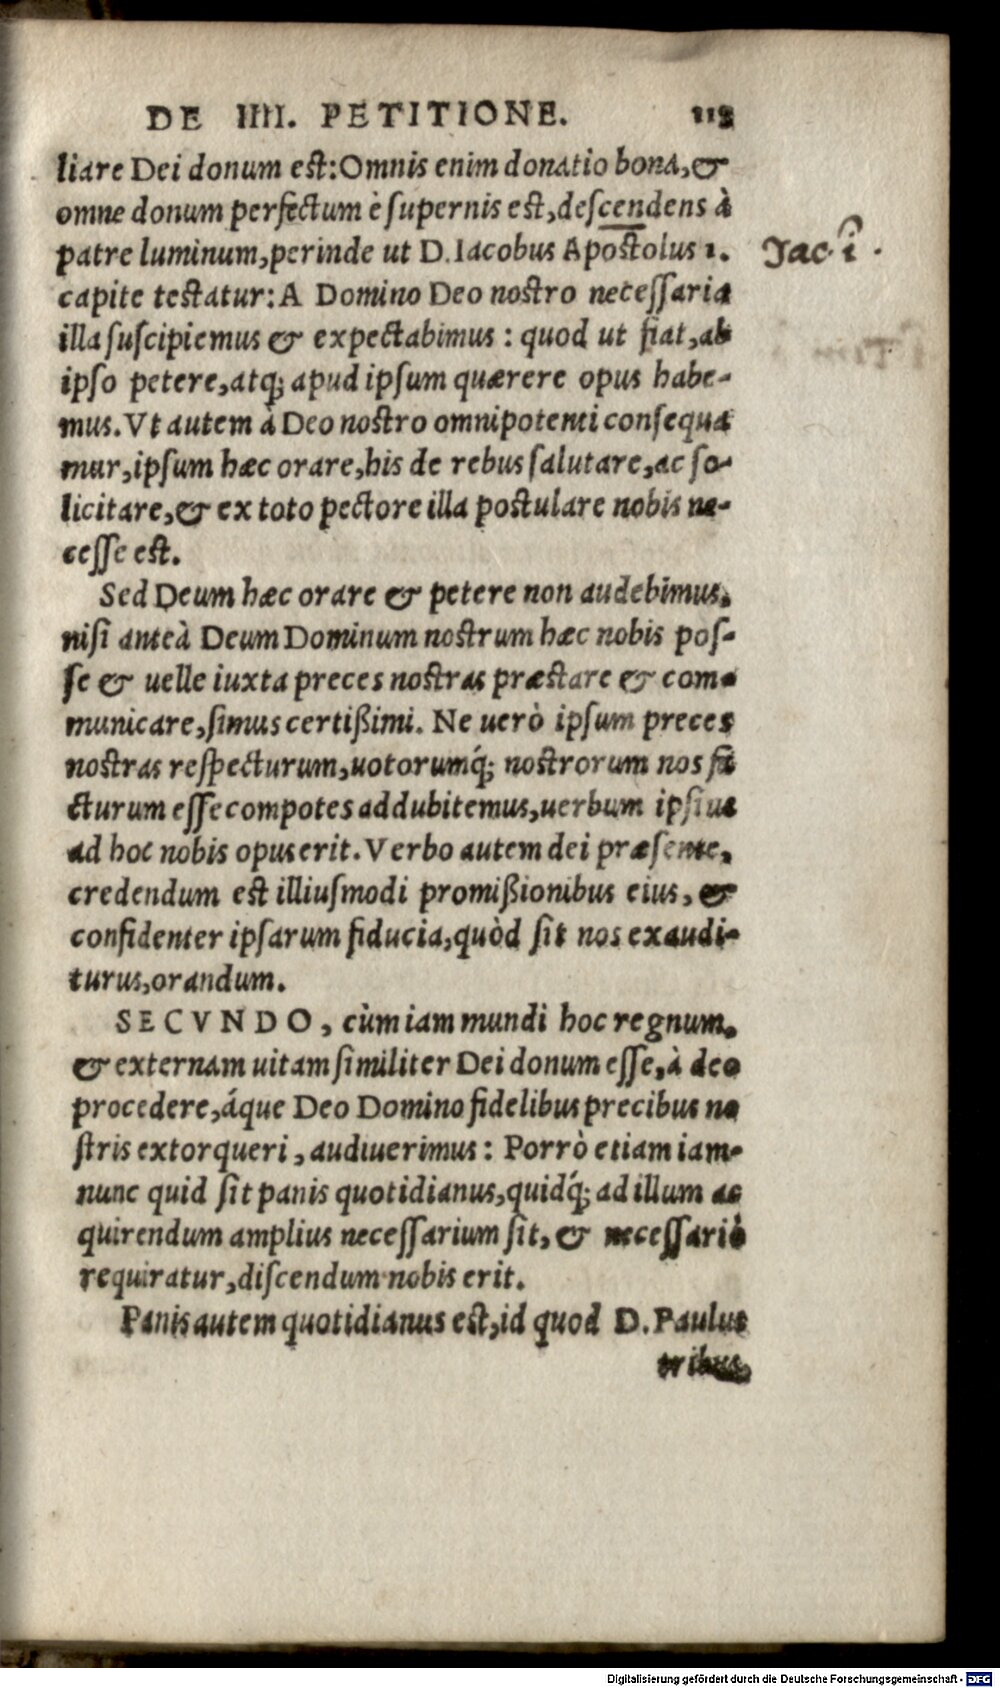 DE IIII. PETITIONE. 113
liare Dei donum est: Omnis enim donatio bona, &
omne donum perfectum è supernis est, descendens à
patre luminum, perinde ut D. Iacobus Apostolus 1.
Jac. i.
capite testatur: A Domino Deo nostro necessaria
illa suscipiemus & expectabimus : quod ut fiat, ab
ipso petere, atq; apud ipsum quærere opus habe-
mus. Vt autem à Deo nostro omnipotenti consequa
mur, ipsum hæc orare, his de rebus salutare, ac so-
licitare, & ex toto pectore illa postulare nobis ne-
cesse est.
Sed Deum hæc orare & petere non audebimus,
nisi anteà Deum Dominum nostrum hæc nobis pos-
se & uelle iuxta preces nostras præstare & com-
municare, simus certißimi. Ne uerò ipsum preces
nostras respecturum, uotorumq́; nostrorum nos fa
cturum esse compotes addubitemus, uerbum ipsius
ad hoc nobis opus erit. Verbo autem dei præsente,
credendum est illiusmodi promißionibus eius, &
confidenter ipsarum fiducia, quòd sit nos exaudi-
turus, orandum.
SECVNDO, cùm iam mundi hoc regnum,
& externam uitam similiter Dei donum esse, à deo
procedere, áque Deo Domino fidelibus precibus no
stris extorqueri, audiuerimus: Porrò etiam iam-
nunc quid sit panis quotidianus, quidq́; ad illum ac
quirendum amplius necessarium sit, & necessariò
requiratur, discendum nobis erit.
Panis autem quotidianus est, id quod D. Paulus
tribus
Digitalisierung gefördert durch die Deutsche Forschungsgemeinschaft - DFG